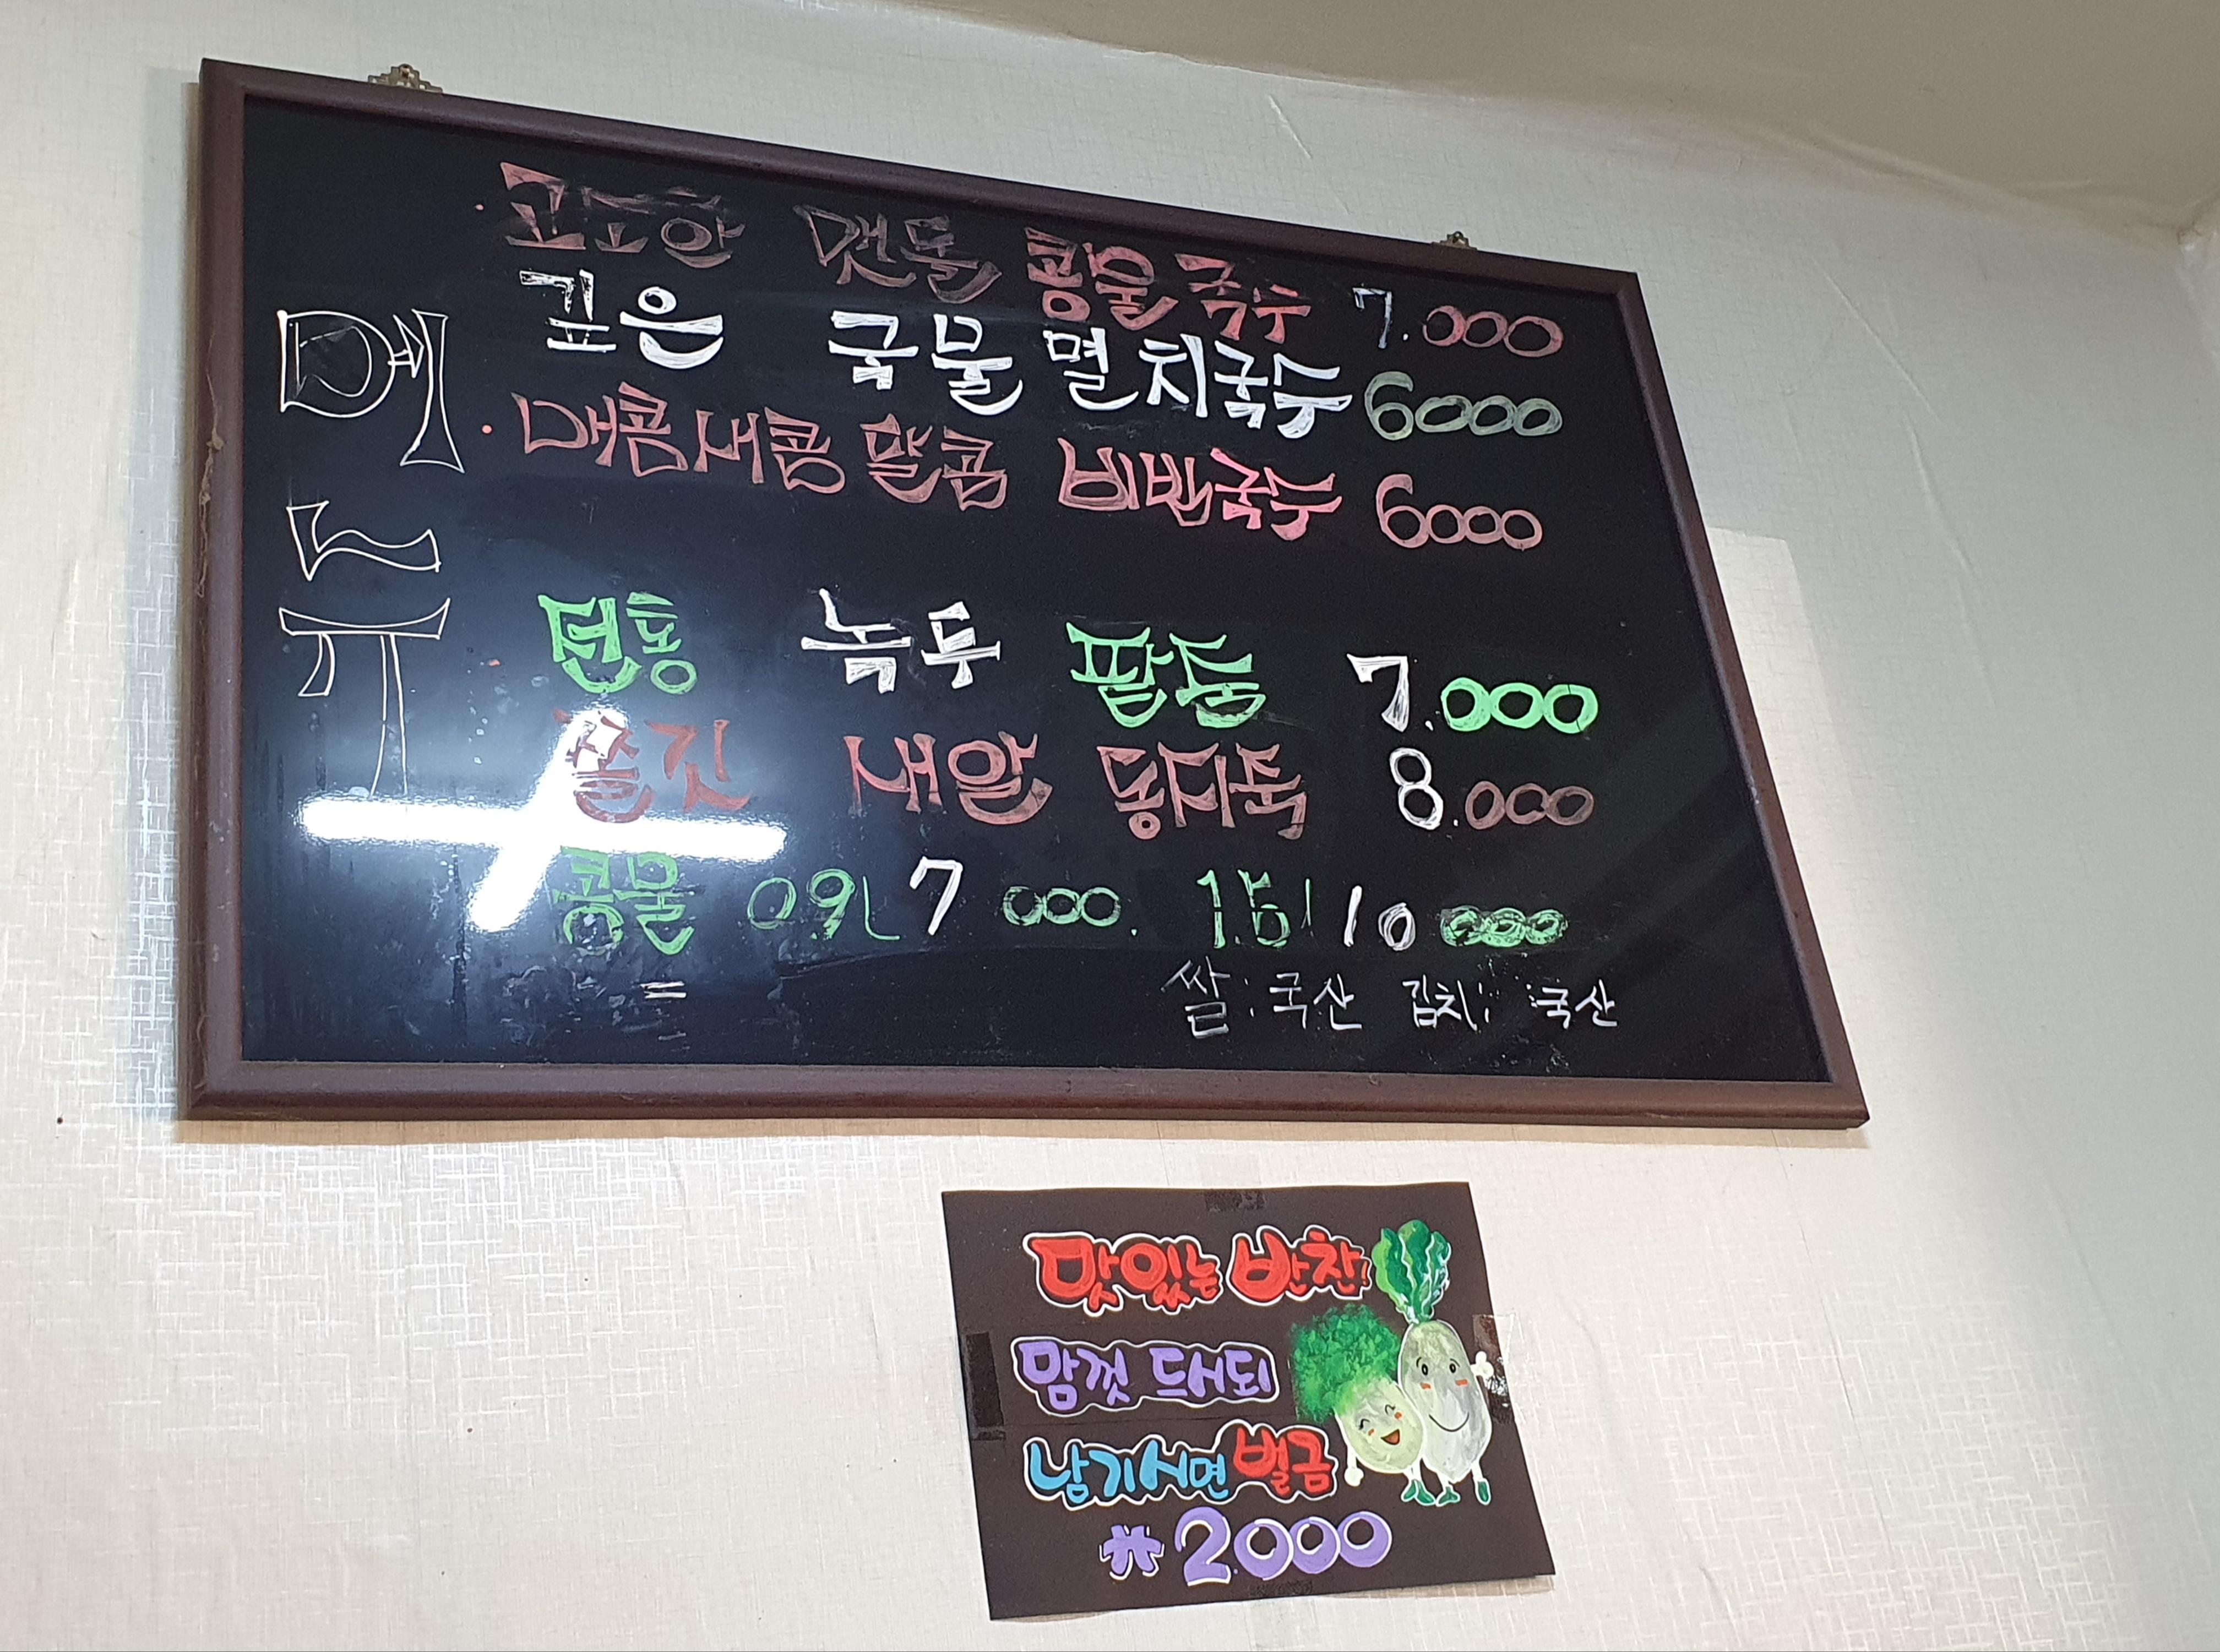 메뉴
고소한 맷돌 콩물국수 7.000
깊은 국물 멸치국수 6000
매콤새콤달콤 비빔국수 6000
전통 녹두 팥죽 7.000
쫄깃 새알 동지죽 8.000
콩물 09L 7 000. 1.5l 10 000
쌀:국산 김치: 국산
맛있는 반찬!
맘껏 드시되
남기시면 벌금
* 2.000